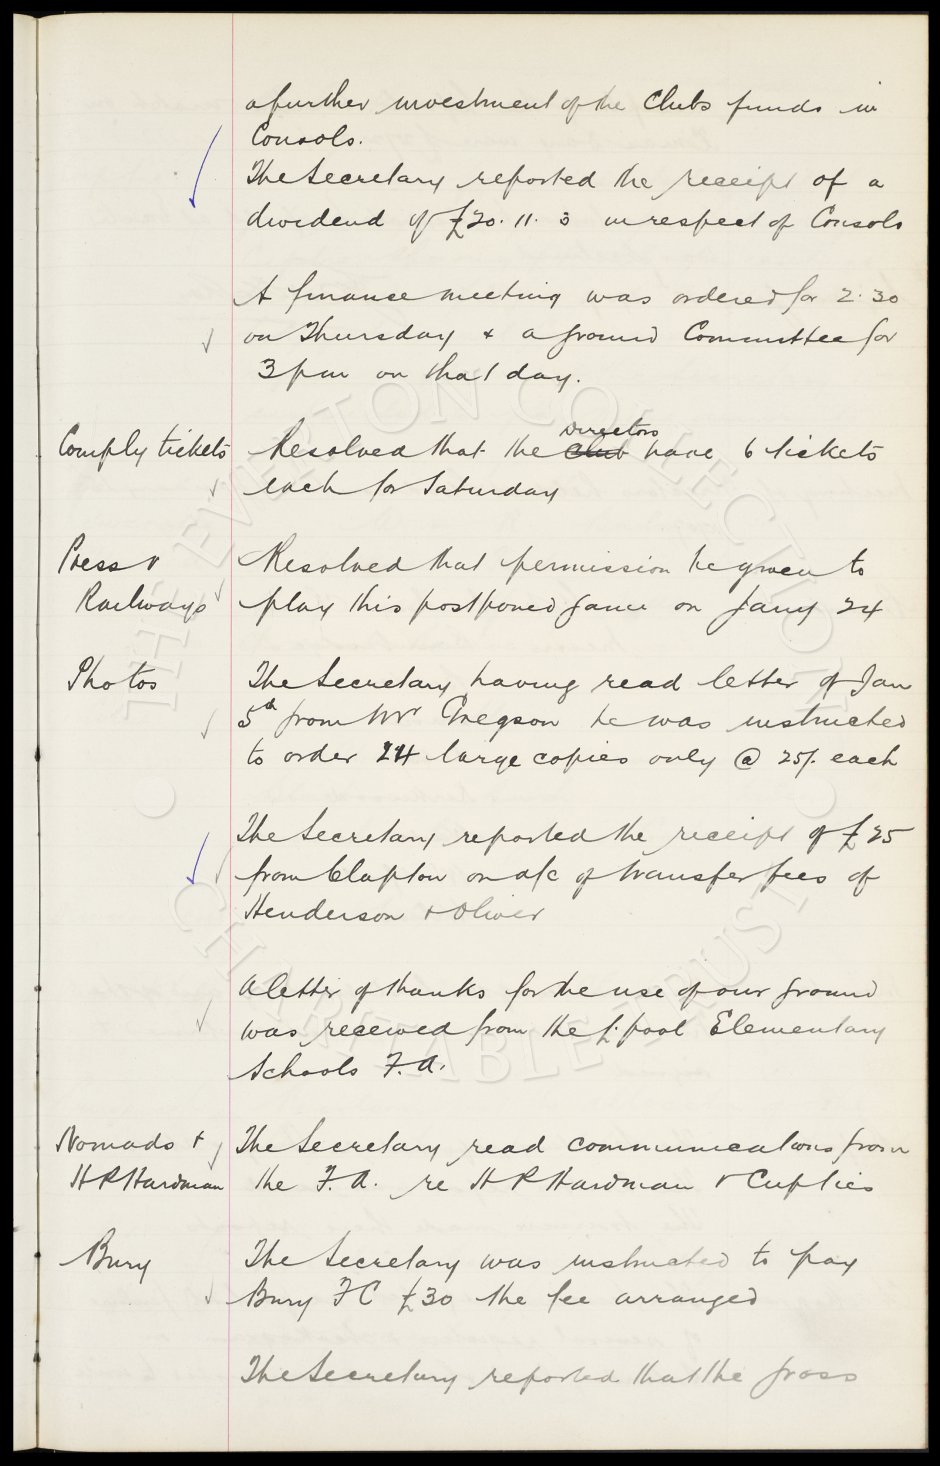 a further investment of the Clubs funds in
Consols.
The Secretary reported the receipt of a
dividend of £20.11.3 in respect of Consols
A finance meeting was ordered for 2.30
on Thursday & a ground Committee for
3 pm on that day.
Directors
Comply tickets Resolved that the Club have 6 tickets
each for Saturday
Press v Resolved that permission be given to
Railways play this postponed game on Jany 24
Photos The Secretary having read letter of Jan
5th from Mr Gregson he was instructed
to order 24 large copies only @ 25/. each
The Secretary reported the receipt of £25
from Clapton on a/c of transfer fees of
Henderson & Oliver
A letter of thanks for the use of our ground
was received from the L'pool Elementary
Schools F.A.
Nomads & The Secretary read communications from
H P Hardman the F.A. re H P Hardman & Cupties
Bury The Secretary was instructed to pay
Bury FC £30 the fee arranged
The Secretary reported that the gross
THE EVERTON COLLECTION
CHARITABLE TRUST